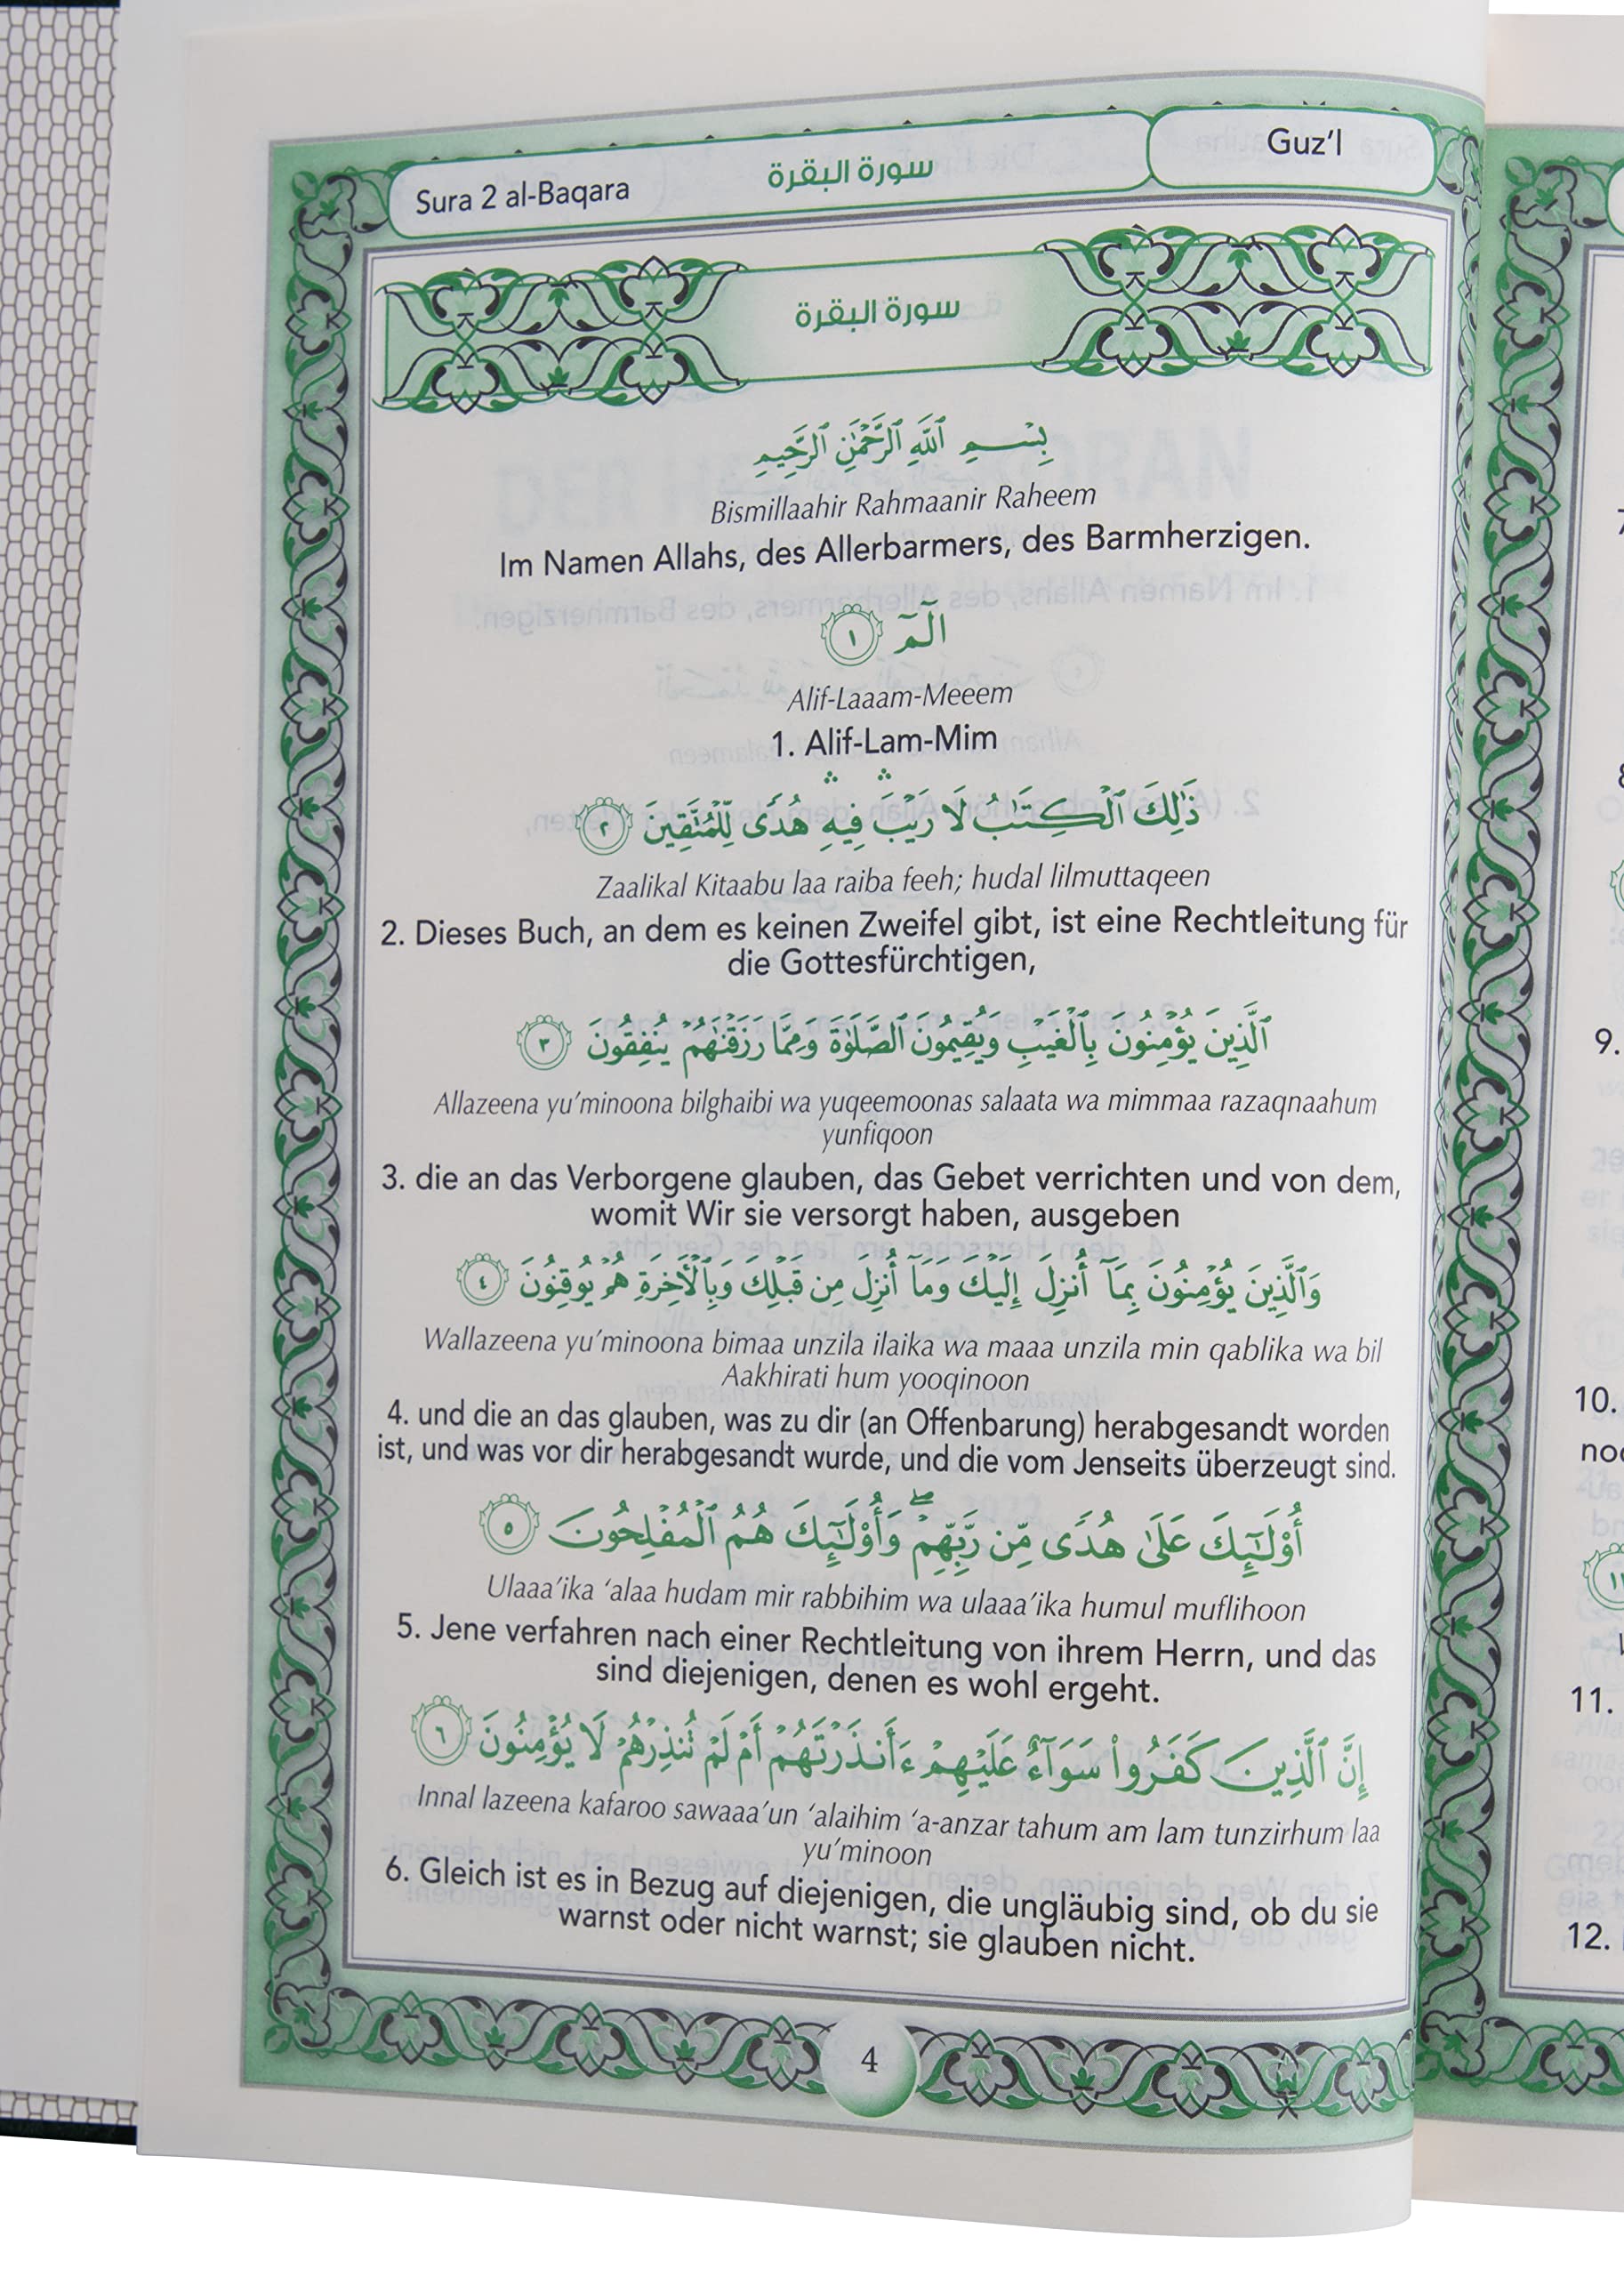 Sura 2 al-Baqara سورة البقرة Guz’I
سورة البقرة
بِسْمِ ٱللَّهِ ٱلرَّحْمَٰنِ ٱلرَّحِيمِ
Bismillaahir Rahmaanir Raheem
Im Namen Allahs, des Allerbarmers, des Barmherzigen.
الٓمٓ ١
Alif-Laaam-Meeem
1. Alif-Lam-Mim
ذَٰلِكَ ٱلْكِتَٰبُ لَا رَيْبَ ۛ فِيهِ ۛ هُدًى لِّلْمُتَّقِينَ ٢
Zaalikal Kitaabu laa raiba feeh; hudal lilmuttaqeen
2. Dieses Buch, an dem es keinen Zweifel gibt, ist eine Rechtleitung für
die Gottesfürchtigen,
ٱلَّذِينَ يُؤْمِنُونَ بِٱلْغَيْبِ وَيُقِيمُونَ ٱلصَّلَوٰةَ وَمِمَّا رَزَقْنَٰهُمْ يُنفِقُونَ ٣
Allazeena yu’minoona bilghaibi wa yuqeemoonas salaata wa mimmaa razaqnaahum
yunfiqoon
3. die an das Verborgene glauben, das Gebet verrichten und von dem,
womit Wir sie versorgt haben, ausgeben
وَٱلَّذِينَ يُؤْمِنُونَ بِمَآ أُنزِلَ إِلَيْكَ وَمَآ أُنزِلَ مِن قَبْلِكَ وَبِٱلْأَخِرَةِ هُمْ يُوقِنُونَ ٤
Wallazeena yu’minoona bimaa unzila ilaika wa maaa unzila min qablika wa bil
Aakhirati hum yooqinoon
4. und die an das glauben, was zu dir (an Offenbarung) herabgesandt worden
ist, und was vor dir herabgesandt wurde, und die vom Jenseits überzeugt sind.
أُو۟لَٰٓئِكَ عَلَىٰ هُدًى مِّن رَّبِّهِمْ ۖ وَأُو۟لَٰٓئِكَ هُمُ ٱلْمُفْلِحُونَ ٥
Ulaaa’ika ‘alaa hudam mir rabbihim wa ulaaa’ika humul muflihoon
5. Jene verfahren nach einer Rechtleitung von ihrem Herrn, und das
sind diejenigen, denen es wohl ergeht.
إِنَّ ٱلَّذِينَ كَفَرُوا۟ سَوَآءٌ عَلَيْهِمْ ءَأَنذَرْتَهُمْ أَمْ لَمْ تُنذِرْهُمْ لَا يُؤْمِنُونَ ٦
Innal lazeena kafaroo sawaaa’un ‘alaihim ‘a-anzar tahum am lam tunzirhum laa
yu’minoon
6. Gleich ist es in Bezug auf diejenigen, die ungläubig sind, ob du sie
warnst oder nicht warnst; sie glauben nicht.
4
9.
10.
11.
12.